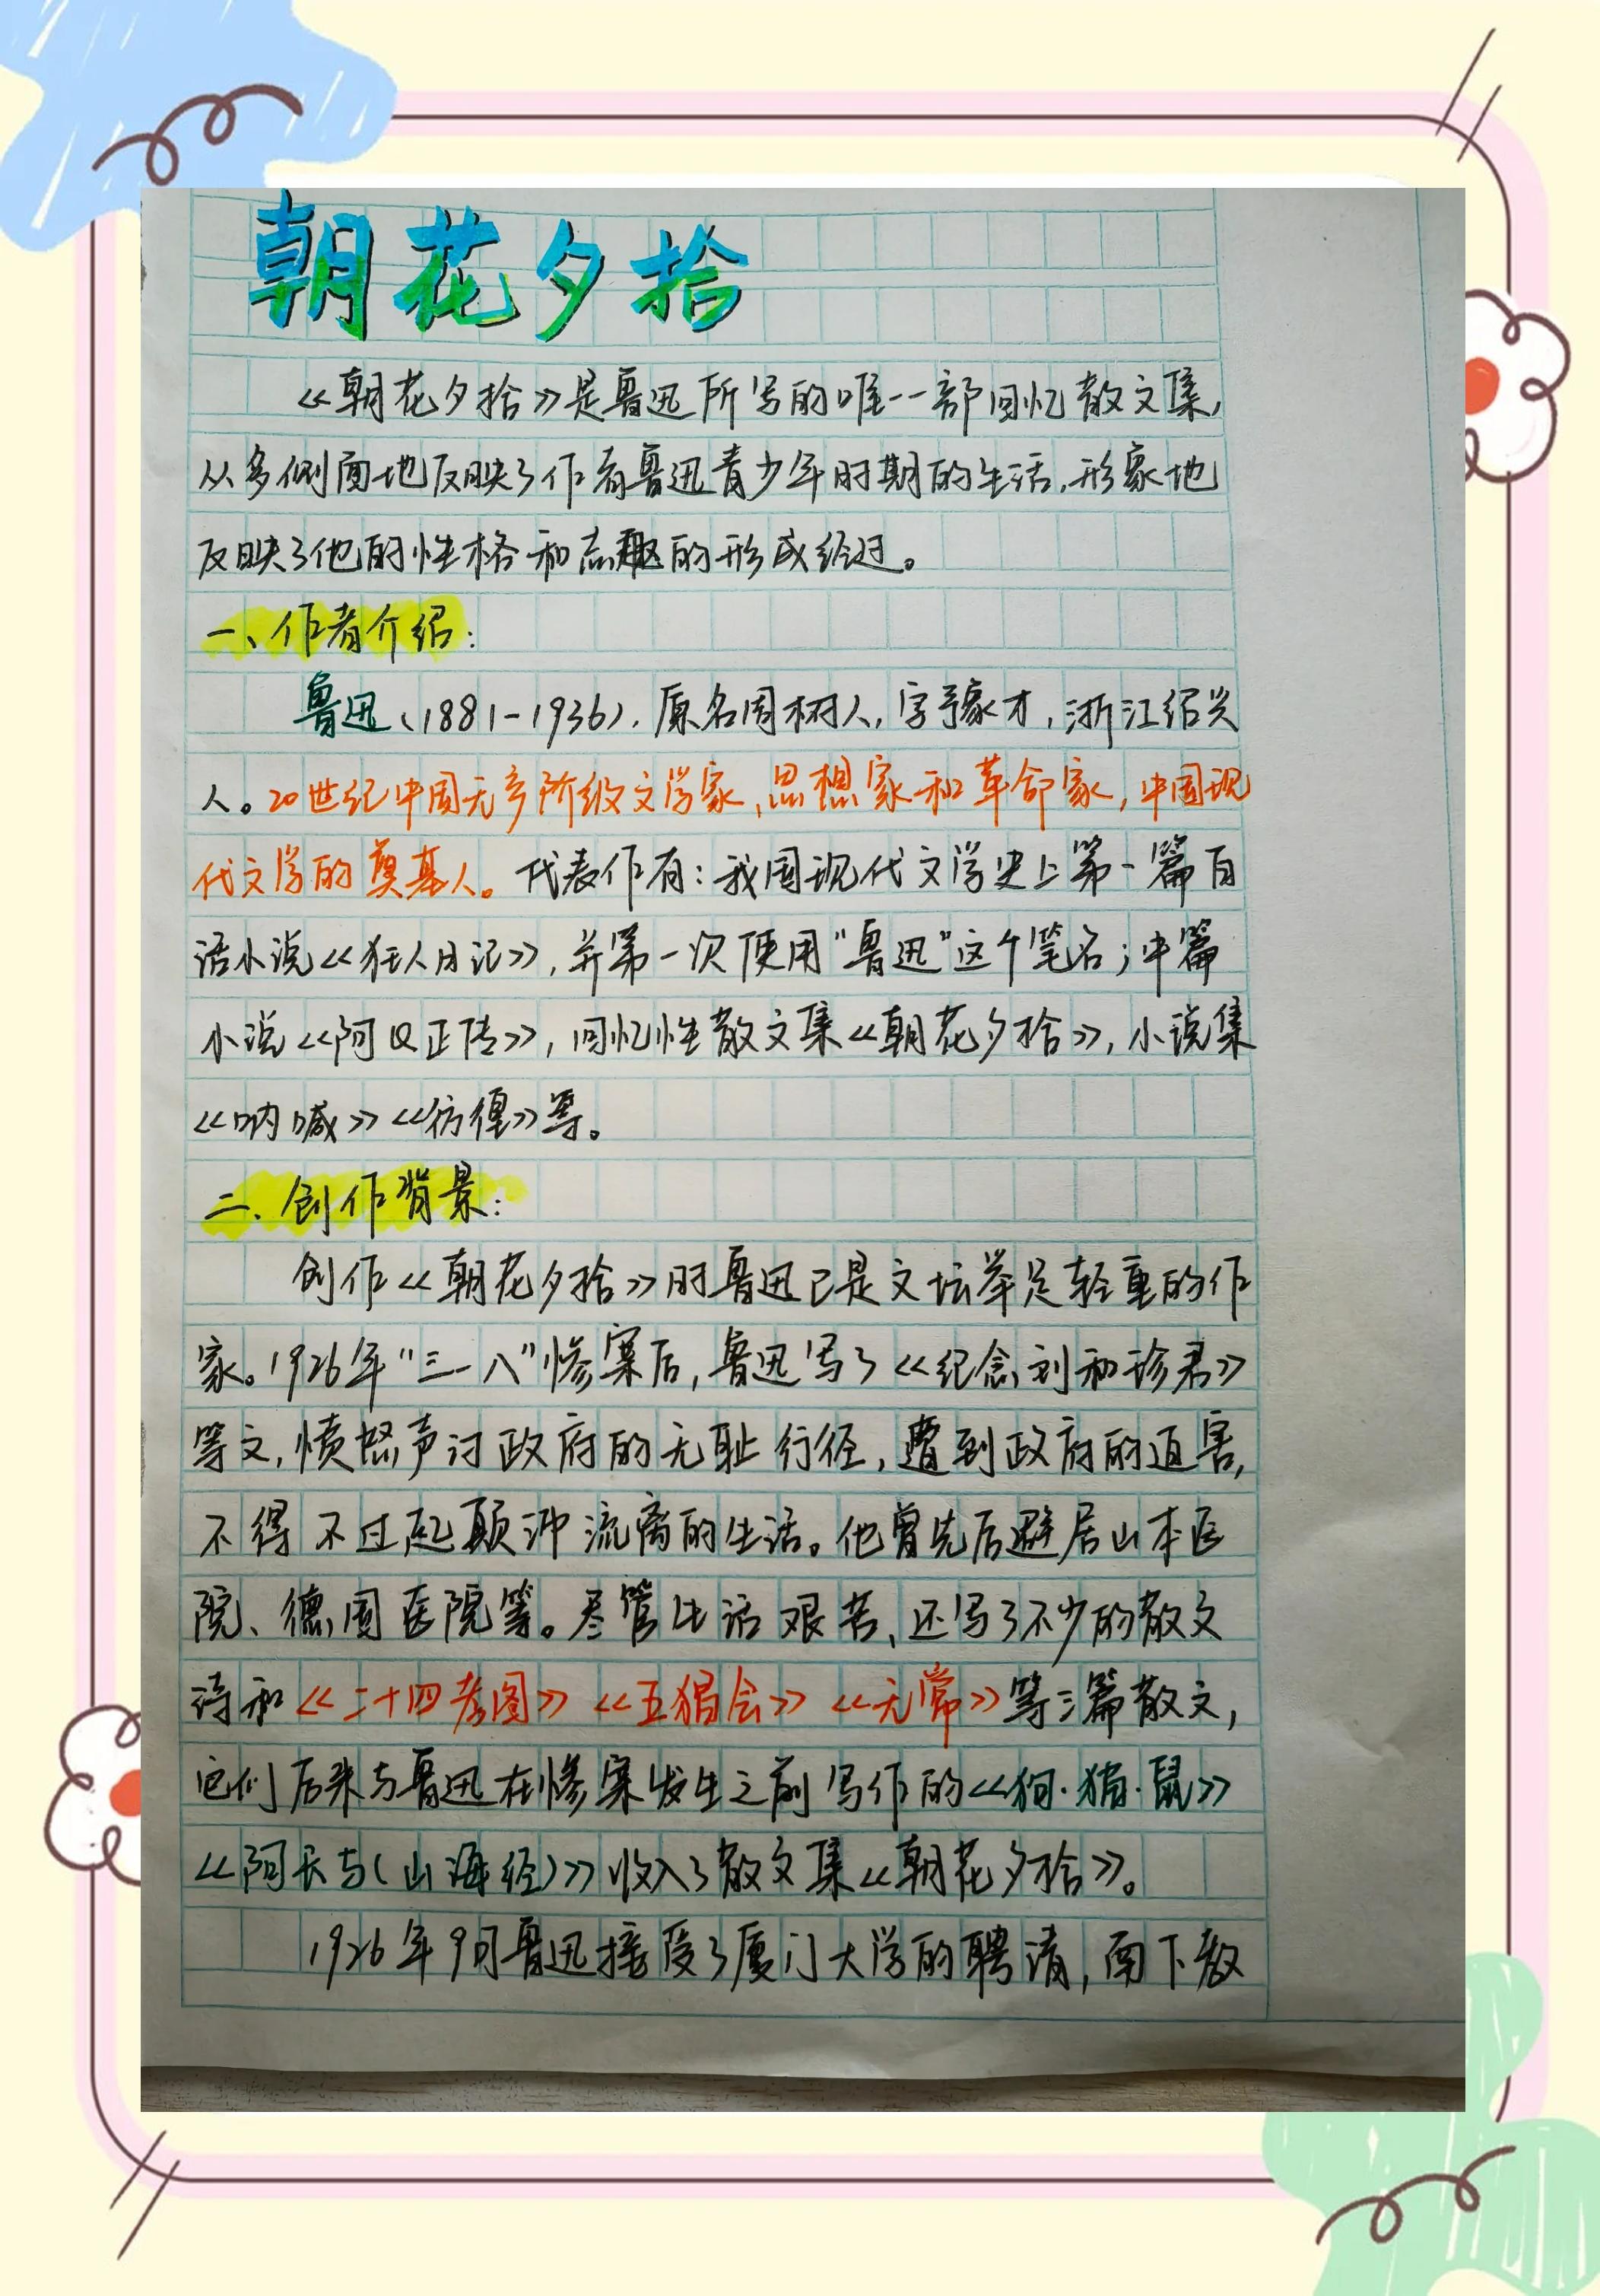 朝花夕拾
《朝花夕拾》是鲁迅所写的唯一一部回忆散文集,
从多侧面地反映了作者鲁迅青少年时期的生活,形象地
反映了他的性格和志趣的形成经过。
一、作者介绍:
鲁迅(1881-1936),原名周树人,字豫才,浙江绍兴
人。20世纪中国无产阶级文学家,思想家和革命家,中国现
代文学的奠基人。代表作有:我国现代文学史上第一篇白
话小说《狂人日记》,并第一次使用“鲁迅”这个笔名;中篇
小说《阿Q正传》,回忆性散文集《朝花夕拾》,小说集
《呐喊》《彷徨》等。
二、创作背景:
创作《朝花夕拾》时鲁迅已是文坛举足轻重的作
家。1926年“三一八”惨案后,鲁迅写了《纪念刘和珍君》
等文,愤怒声讨政府的无耻行径,遭到政府的迫害,
不得不过起颠沛流离的生活。他曾先后避居山本医
院、德国医院等。尽管生活艰苦,还写了不少的散文
诗和《二十四孝图》《五猖会》《无常》等三篇散文,
它们后来与鲁迅在惨案发生之前写作的《狗·猫·鼠》
《阿长与(山海经)》收入了散文集《朝花夕拾》。
1926年9月鲁迅接受了厦门大学的聘请,南下教